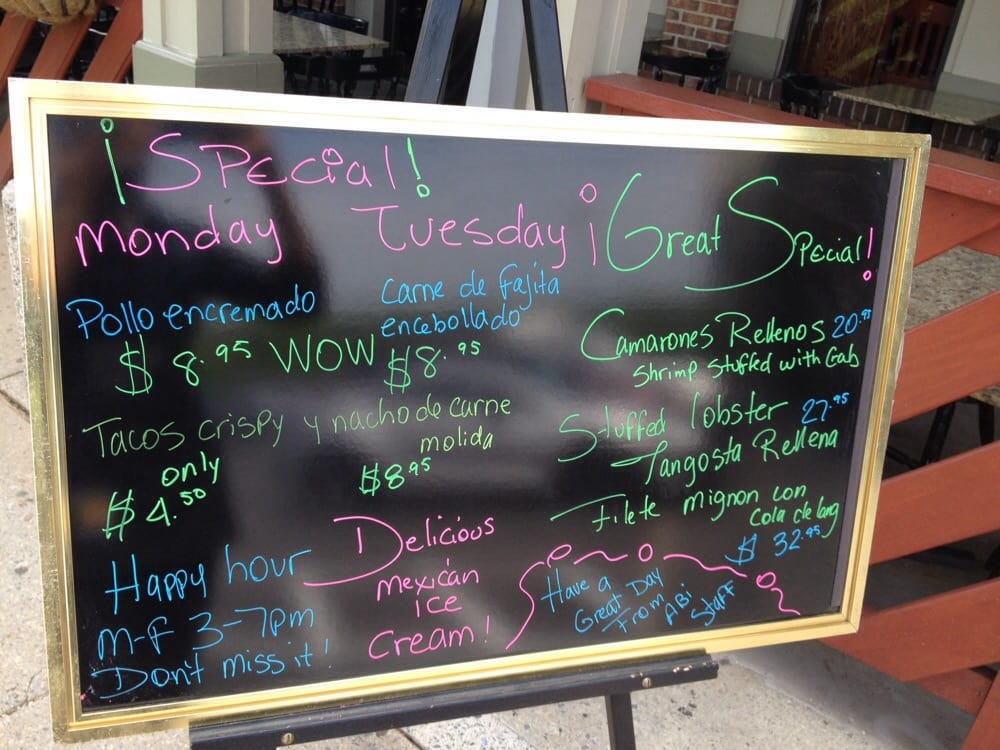 ¡Special!
Monday Tuesday
Pollo encremado
$8.95 WOW
Carne de fajita
encebollado
$8.95
Tacos crispy y nacho de carne
molida
only
$4.50
$8.95
Happy hour
M-F 3-7pm
Don't miss it!
Delicious
mexican
ice
cream!
¡Great Special!
Camarones Rellenos 20.95
Shrimp stuffed with Crab
Stuffed lobster 27.95
Langosta Rellena
Filete mignon con
Cola de lang
$32.95
Have a
Great Day
From ABi
Staff